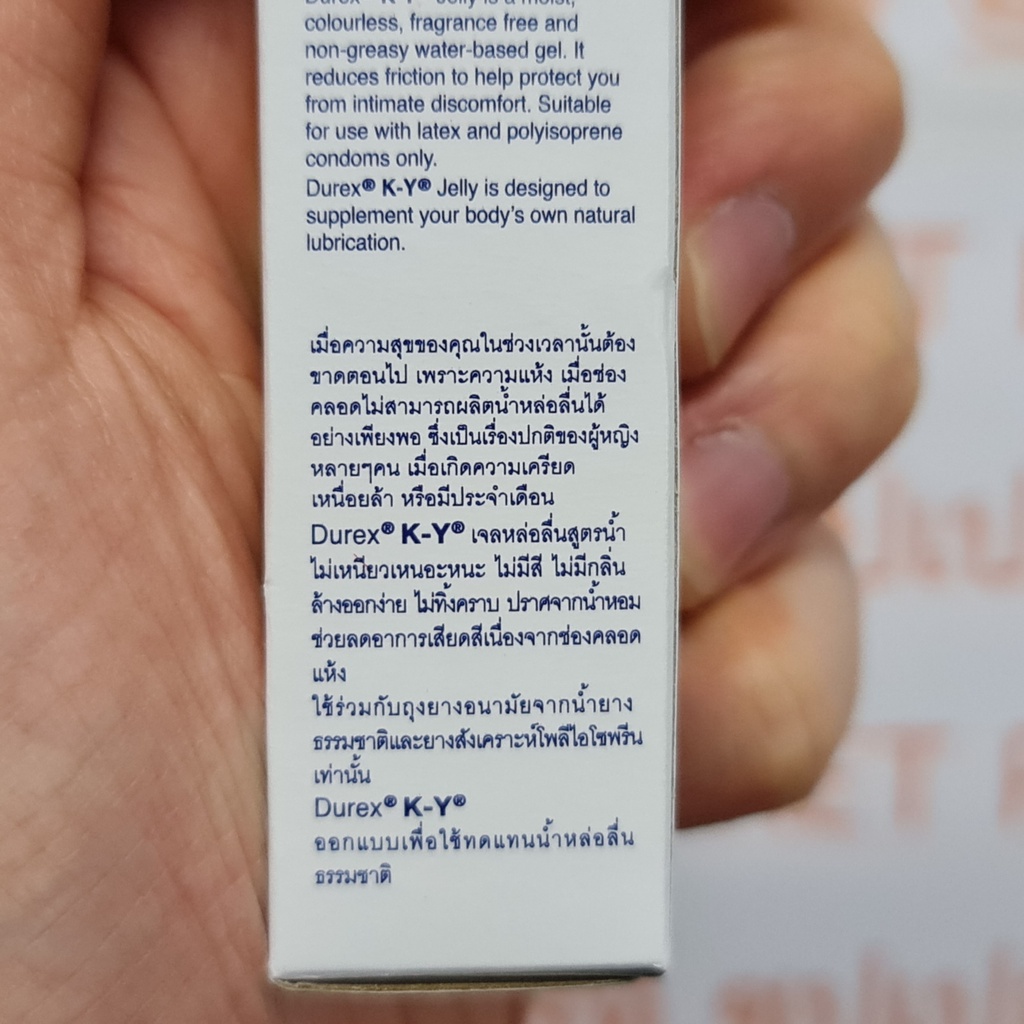 Durex® K-Y® Jelly is a moist,
colourless, fragrance free and
non-greasy water-based gel. It
reduces friction to help protect you
from intimate discomfort. Suitable
for use with latex and polyisoprene
condoms only.
Durex® K-Y® Jelly is designed to
supplement your body's own natural
lubrication.
เมื่อความสุขของคุณในช่วงเวลานั้นต้อง
ขาดตอนไป เพราะความแห้ง เมื่อช่อง
คลอดไม่สามารถผลิตน้ำหล่อลื่นได้
อย่างเพียงพอ ซึ่งเป็นเรื่องปกติของผู้หญิง
หลายๆคน เมื่อเกิดความเครียด
เหนื่อยล้า หรือมีประจำเดือน
Durex® K-Y® เจลหล่อลื่นสูตรน้ำ
ไม่เหนียวเหนอะหนะ ไม่มีสี ไม่มีกลิ่น
ล้างออกง่าย ไม่ทิ้งคราบ ปราศจากน้ำหอม
ช่วยลดอาการเสียดสีเนื่องจากช่องคลอด
แห้ง
ใช้ร่วมกับถุงยางอนามัยจากน้ำยาง
ธรรมชาติและยางสังเคราะห์โพลีไอโซพรีน
เท่านั้น
Durex® K-Y®
ออกแบบเพื่อใช้ทดแทนน้ำหล่อลื่น
ธรรมชาติ